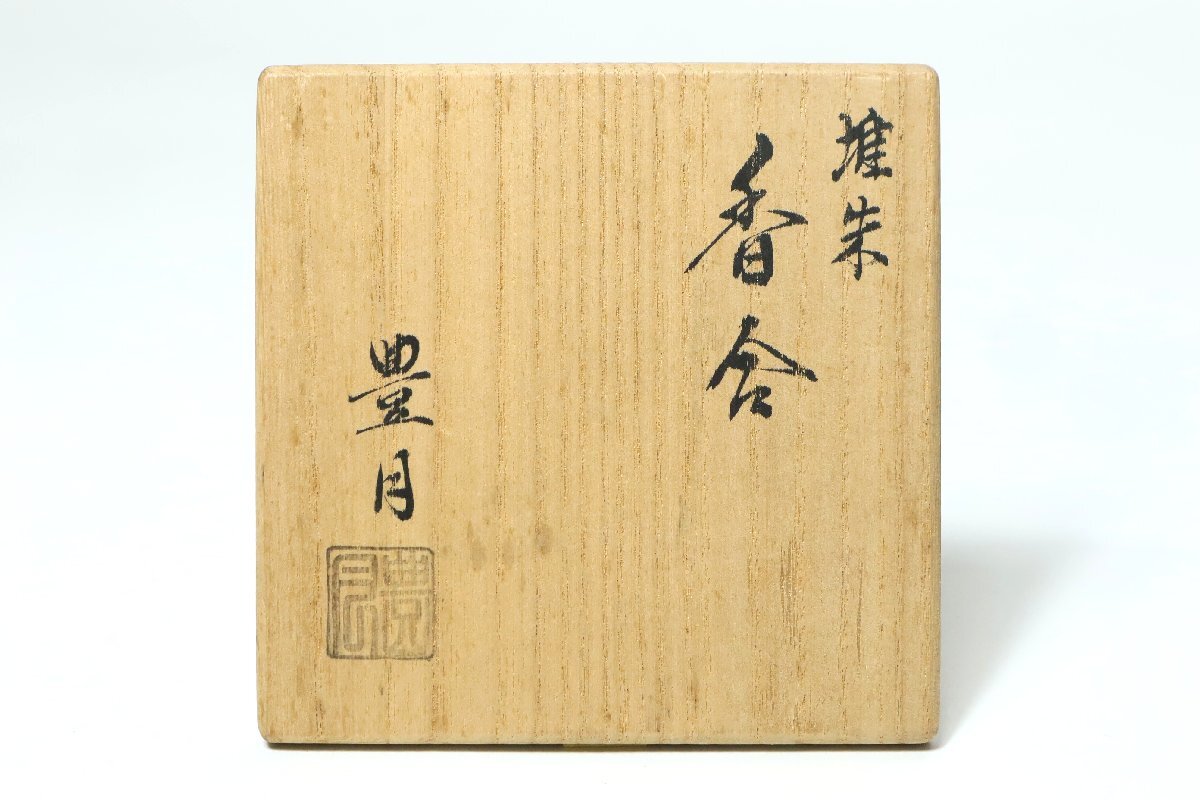 堆朱
香合
豊月
豊月